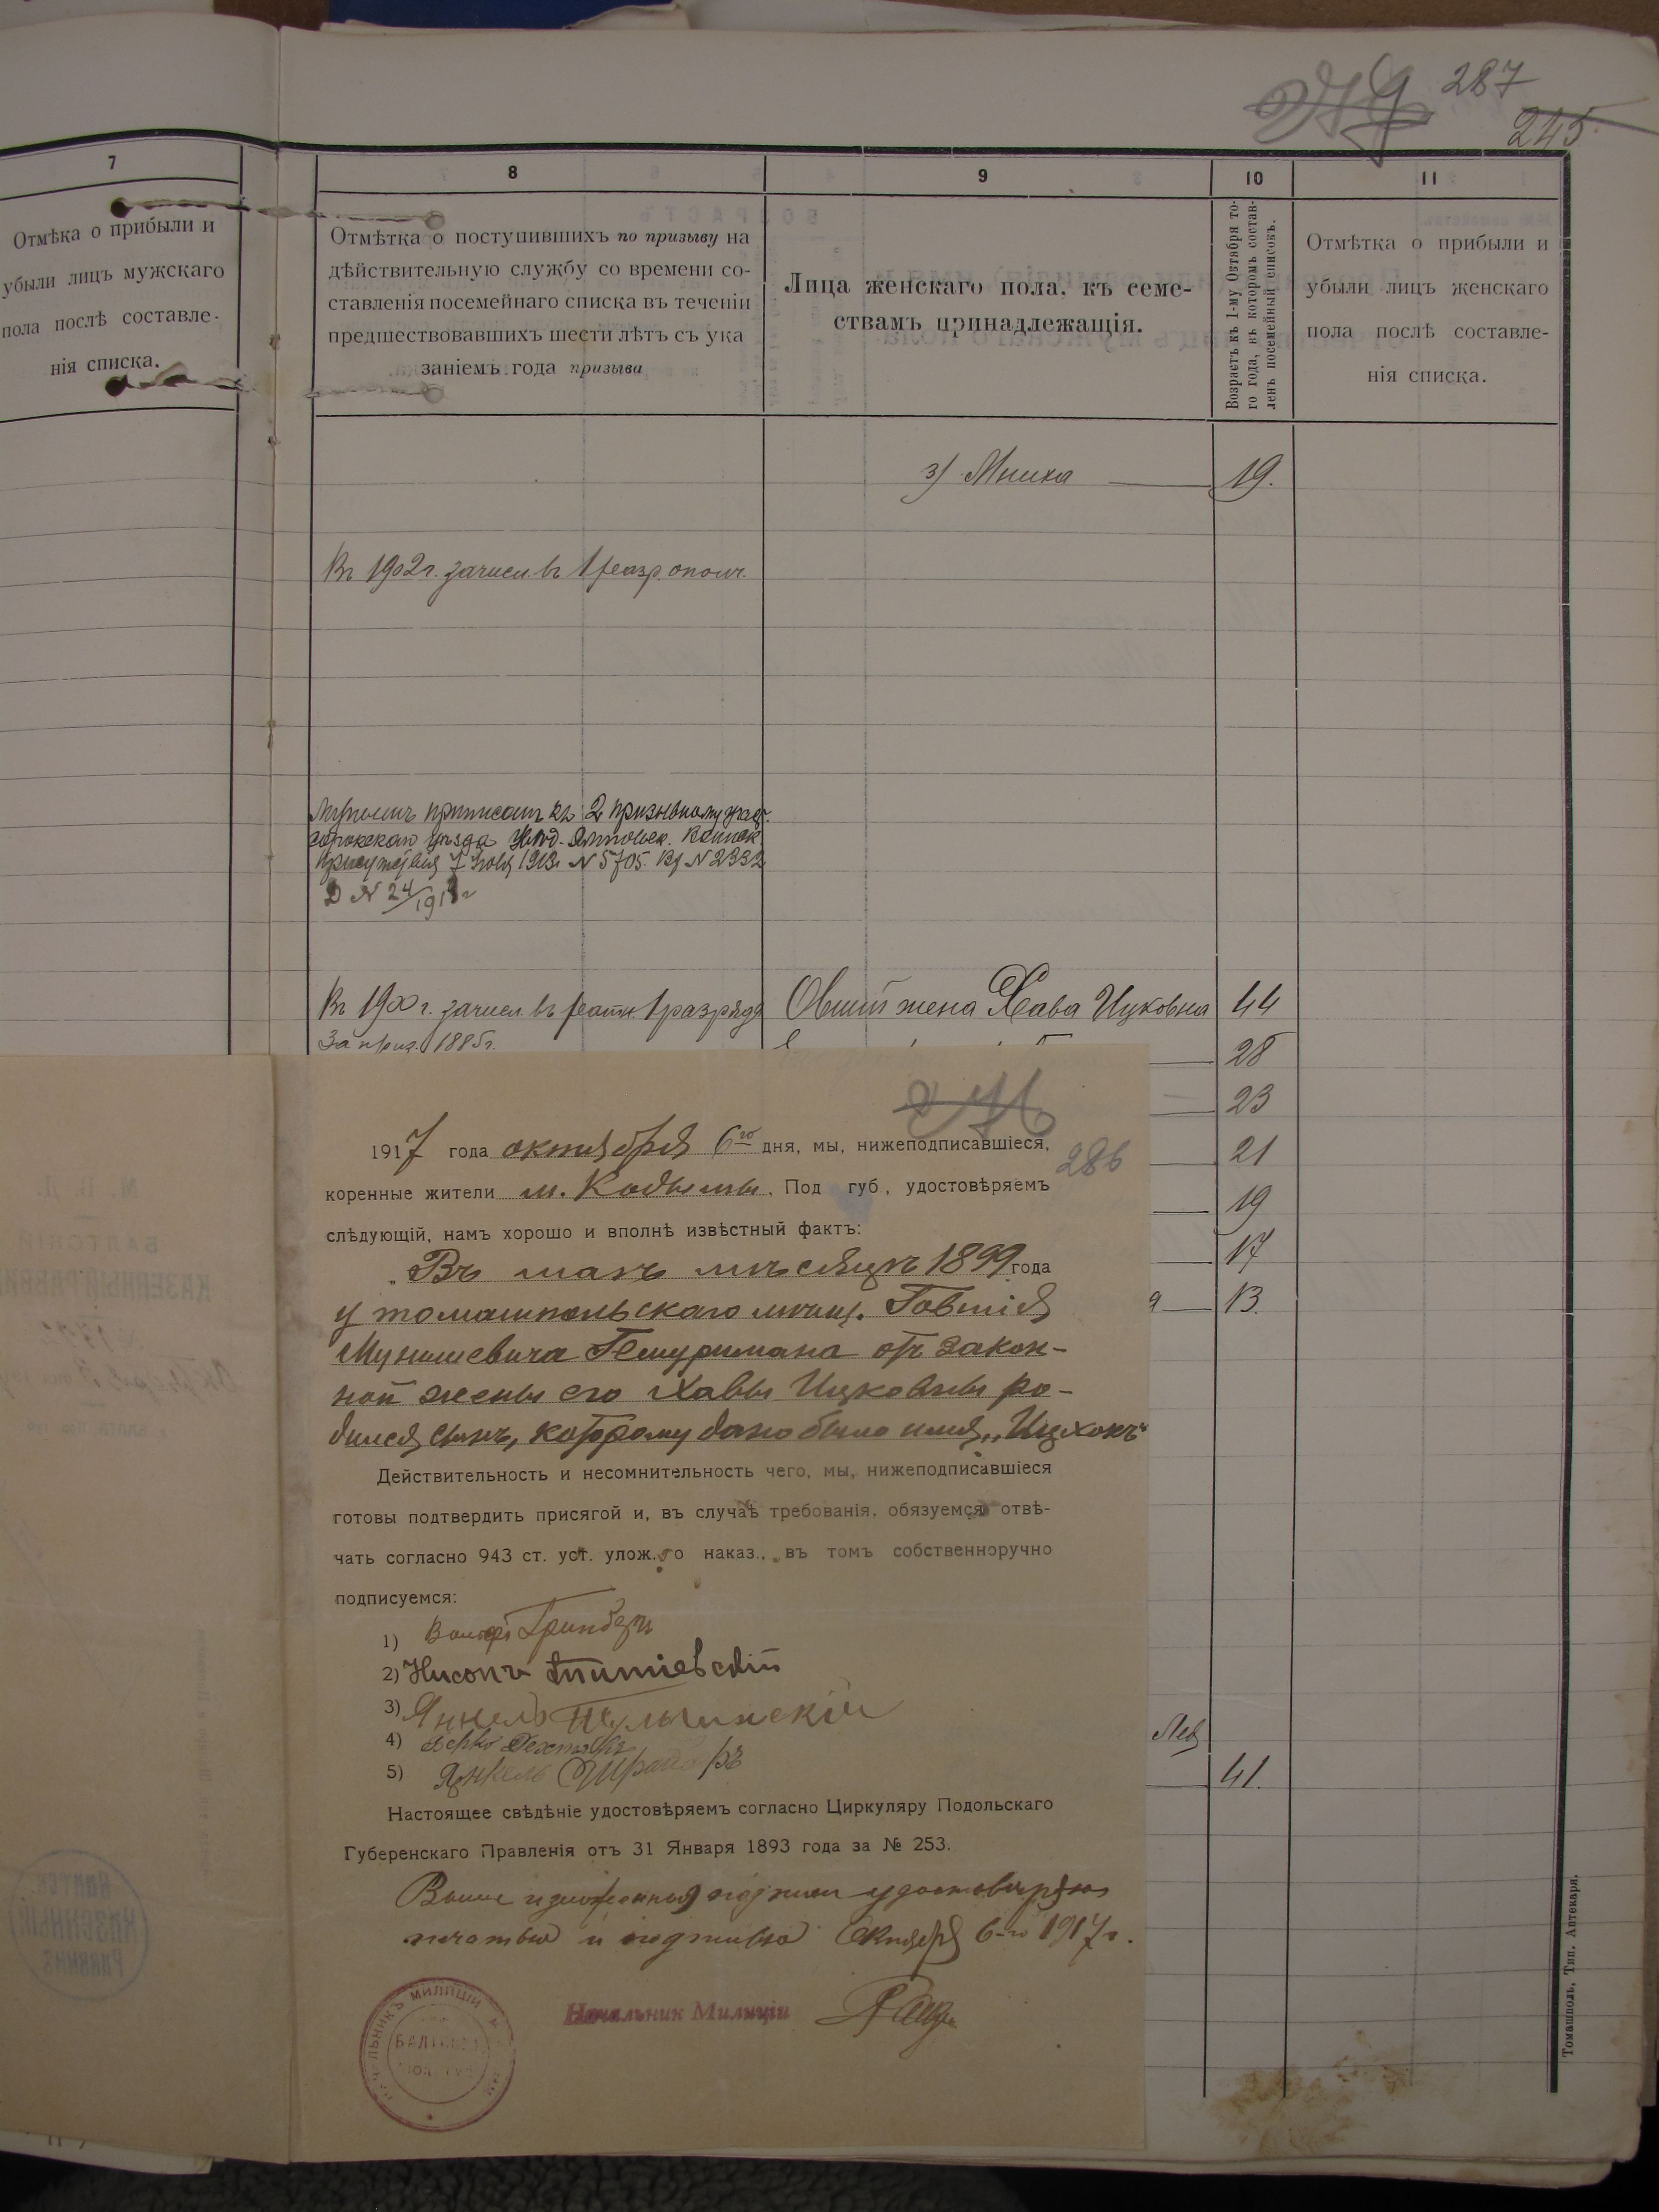 287
245
7
8
9
10
11
Отмѣка о прибыли и
убыли лицъ мужскаго
пола послѣ составле-
нія списка.
Отмѣтка о поступившихъ по призыву на
дѣйствительную службу со времени со-
ставленія посемейнаго списка въ теченіи
предшествовавшихъ шести лѣтъ съ ука
заніемъ года призыва
Лица женскаго пола, къ семе-
ствамъ принадлежащія.
Возрастъ къ 1-му Октября то-
го года, въ которомъ состав-
ленъ посемейный списокъ.
Отмѣтка о прибыли и
убыли лицъ женскаго
пола послѣ составле-
нія списка.
3) Мниха 19.
Въ 1902 г. зачисл. въ 1 разр. ополч.
приписанъ къ 2 призывному
уѣзда
1913 г. № 5705. № 2332
Д № 24/
Въ 1900 г. зачисл. въ ратн. 1 разряда
За приз. 1885 г.
Овшія жена Хава Ицковна 44
28
23
21
19
17
13.
41.
286
1917 года октября 6го дня, мы, нижеподписавшіеся,
коренные жители м. Кодымы, Под губ, удостовѣряемъ
слѣдующій, намъ хорошо и вполнѣ извѣстный фактъ:
„Въ маѣ мѣсяцѣ 1899 года
у томашпольскаго мѣщ. Говшія
Мунишевича отъ закон-
ной жены его Хавы Ицковны ро-
дился сынъ, которому дано было имя „Ицхокъ“
Действительность и несомнительность чего, мы, нижеподписавшіеся
готовы подтвердить присягой и, въ случаѣ требованія, обязуемся отвѣ-
чать согласно 943 ст. уст. улож. о наказ., въ томъ собственноручно
подписуемся:
1) Гринберг
2) Нисонъ
3) Янкель Тульчинскій
4) Берко
5) Янкель
Настоящее свѣдѣніе удостовѣряемъ согласно Циркуляру Подольскаго
Губеренскаго Правленія отъ 31 Января 1893 года за № 253.
Выше изложенныя подписи удостовѣряю
печатью и подписью Октября 6-го 1917 г.
Начальник Милиціи
НАЧАЛЬНИКЪ МИЛИЦІИ
Томашполь, Тип. Аптекаря.